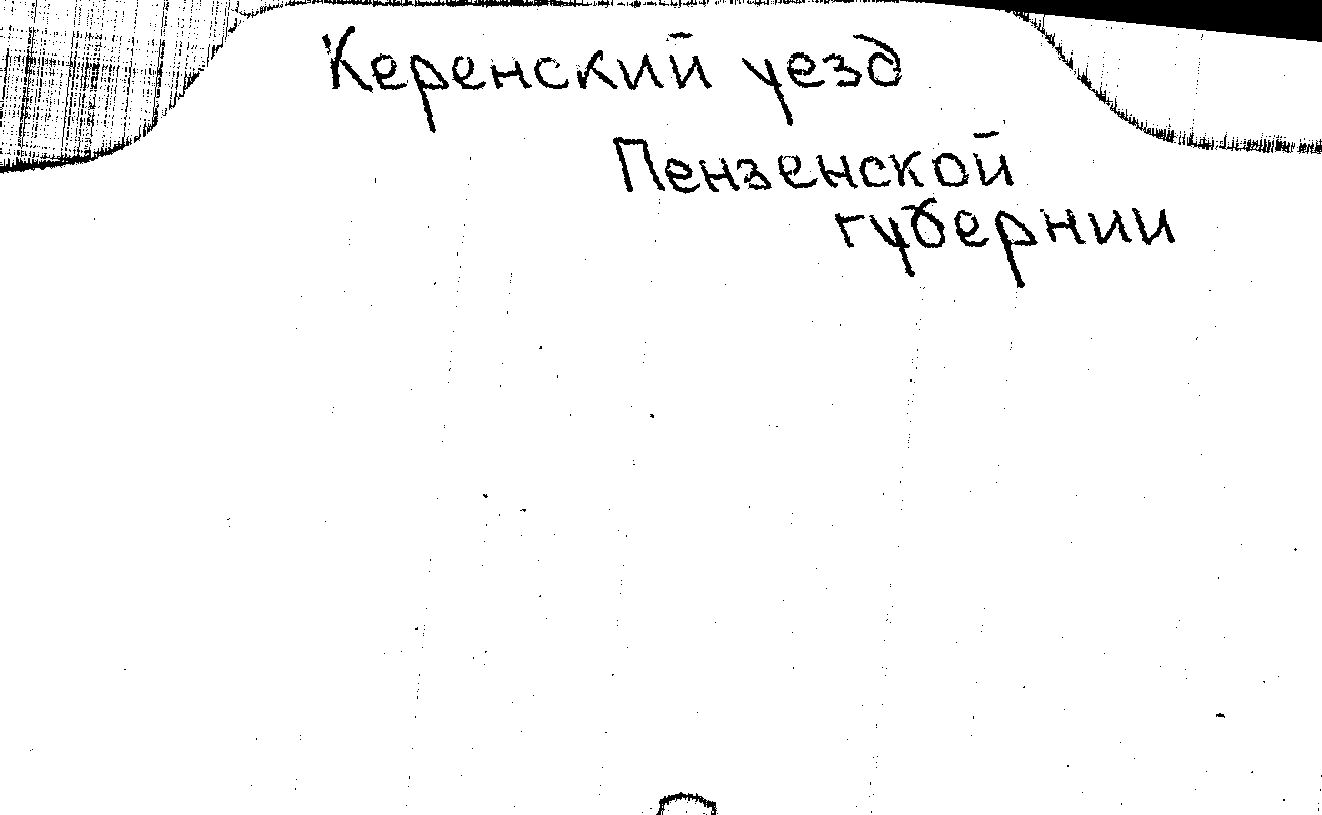 Керенский уезд
Пензенской
губернии